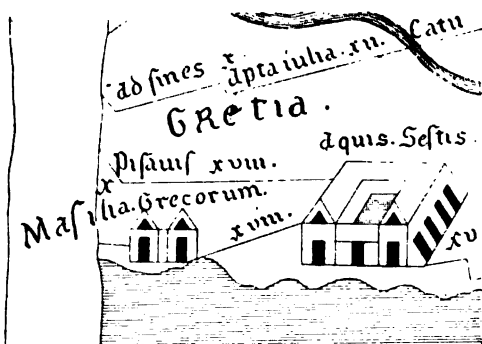 ad fines x apta iulia. xii. Catu
GRETIA.
aquis. Sestis.
Pisauis xviii.
x
Masilia. Grecorum.
xviii.
xv